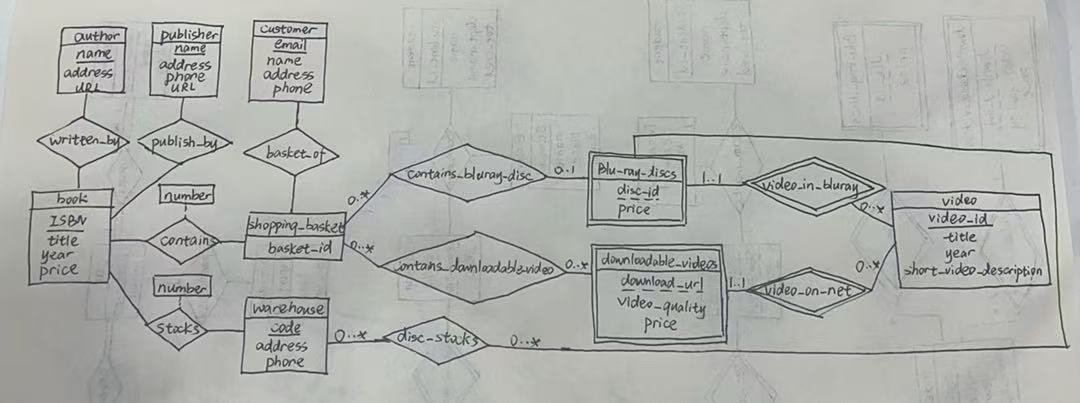 author
name
address
URL
publisher
name
address
phone
URL
customer
email
name
address
phone
written_by
publish_by
basket_of
book
ISBN
title
year
price
number
contains
number
stocks
shopping_basket
basket_id
warehouse
code
address
phone
0..*
contains_bluray_disc
0..1
0..*
contans_downloadable_video
0..*
0..*
disc-stocks
0..*
Blu-ray_discs
disc_id
price
1..1
video_in_bluray
0..*
downloadable_videos
download_url
video_quality
price
1..1
video_on_net
0..*
video
video_id
title
year
short_video_description